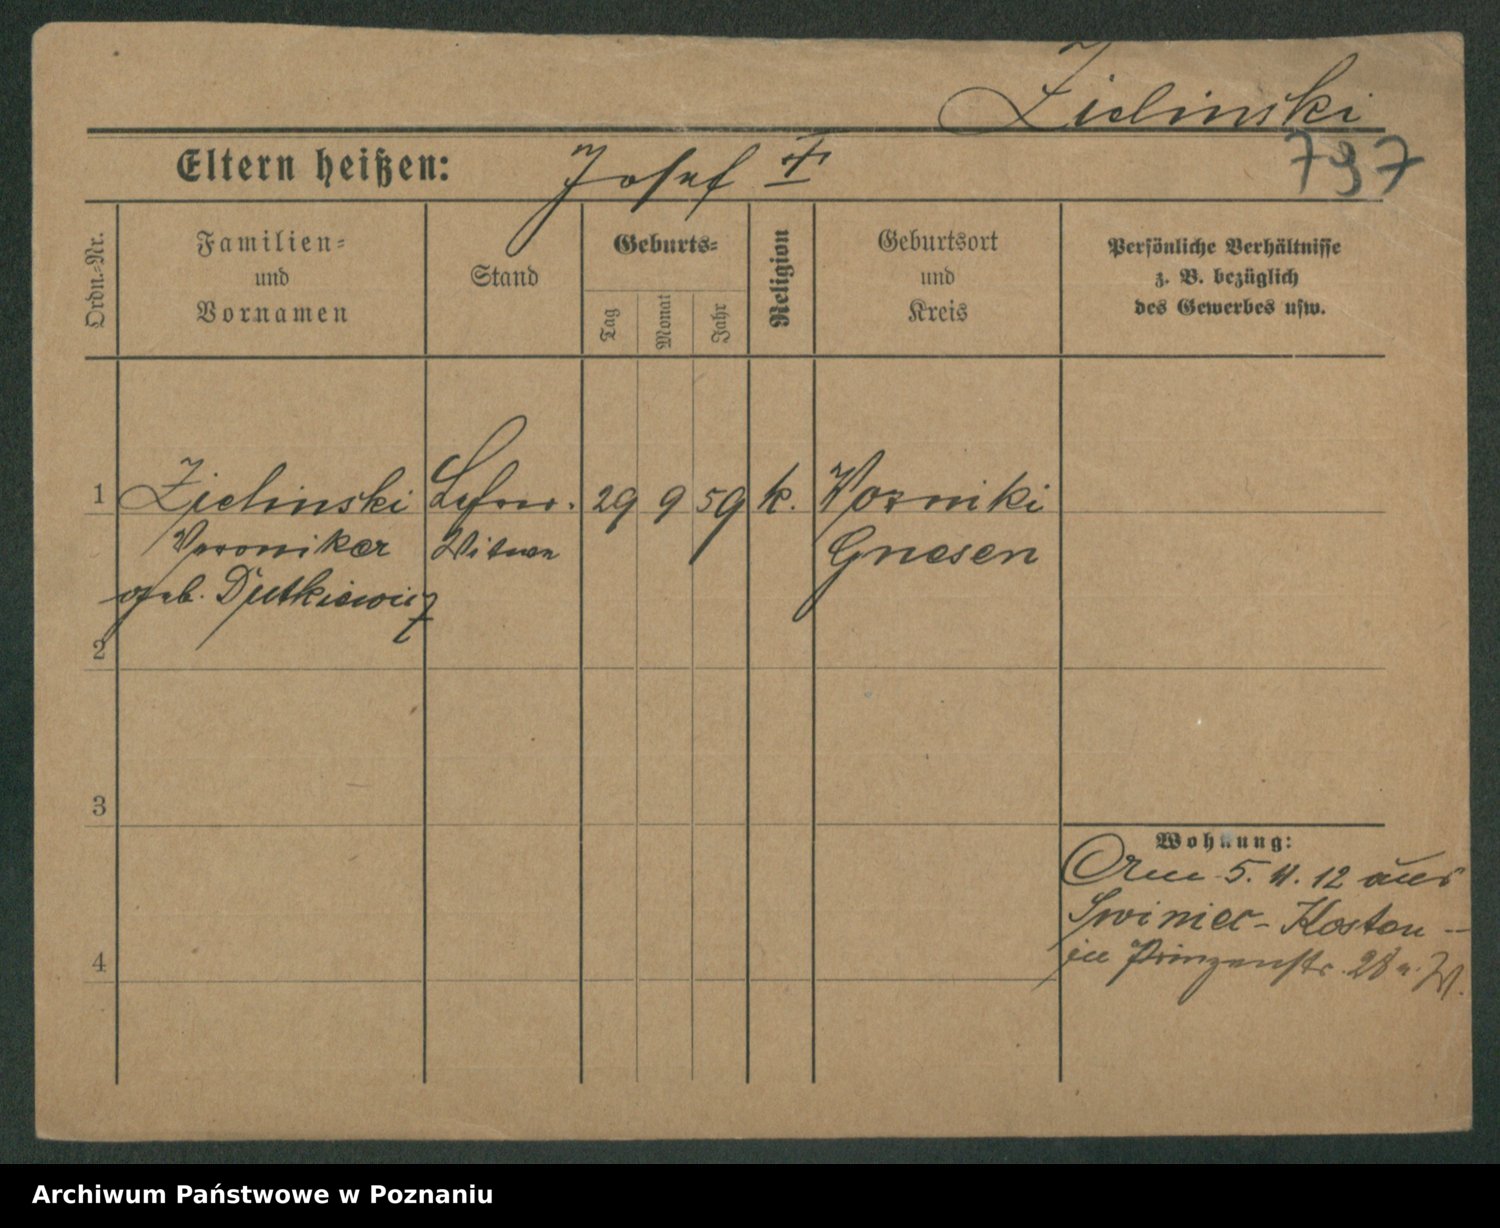 Zielinski
Eltern heißen: Josef † 797
Ordn.-Nr.
Familien-
und
Vornamen
Stand
Geburts-
Tag
Monat
Jahr
Religion
Geburtsort
und
Kreis
Persönliche Verhältnisse
z. B. bezüglich
des Gewerbes usw.
1 Zielinski 29 9 59 k. Worniki
Veronika Witwe Gnesen
geb. Dutkiewicz
2
3
Wohnung:
Am 5. 11. 12 aus
Swiniec - Kosten -
in Prinzenstr. 28
4
Archiwum Państwowe w Poznaniu